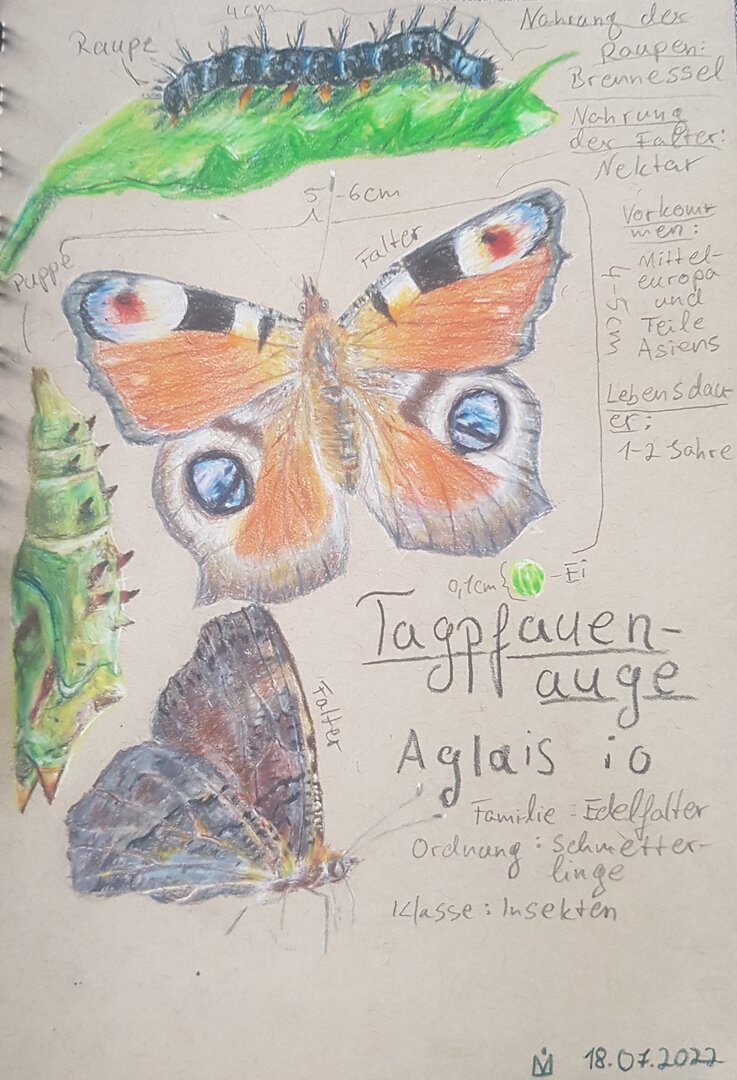 4cm
Raupe
Nahrung der
Raupen:
Brennessel
Nahrung
der Falter:
Nektar
5-6cm
Falter
Puppe
Vorkomm
men:
Mittel-
europa
und
Teile
Asiens
4-5cm
Lebensdau
er:
1-2 Jahre
0,1cm
-Ei
Tagpfauen-
auge
Aglais io
Falter
Familie: Edelfalter
Ordnung: Schmetter-
linge
Klasse: Insekten
18.07.2022